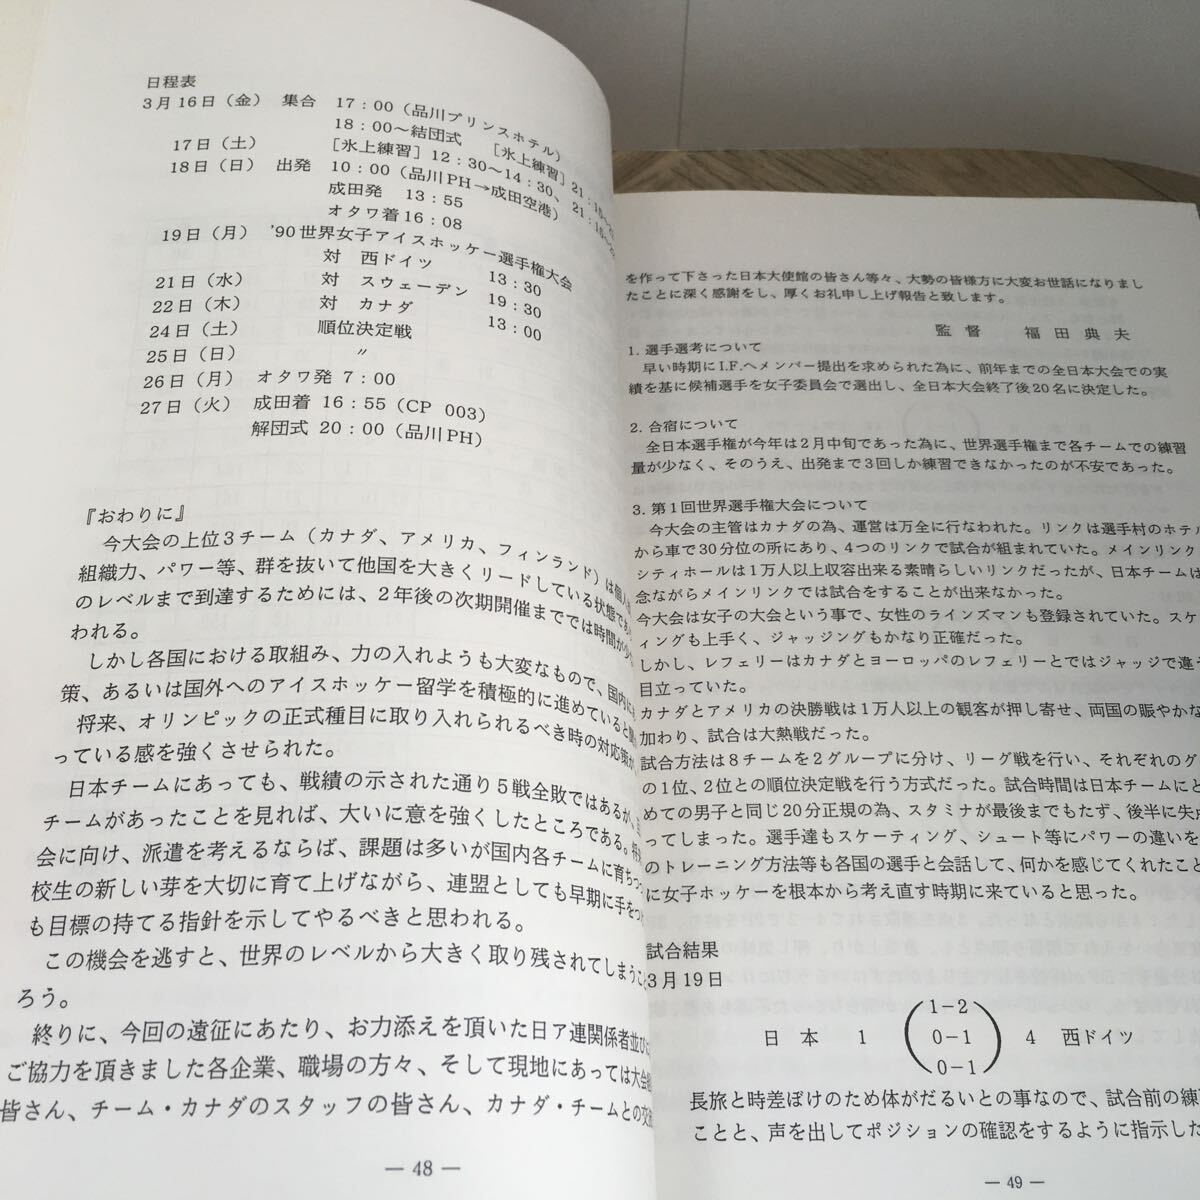 日程表
3月16日（金） 集合 17：00（品川プリンスホテル）
18：00〜結団式 ［氷上練習］21：15〜22
17日（土） ［氷上練習］12：30〜14：30、21：15〜22
18日（日） 出発 10：00（品川PH→成田空港）
成田発 13：55
オタワ着16：08
19日（月） '90世界女子アイスホッケー選手権大会
対 西ドイツ 13：30
21日（水） 対 スウェーデン 19：30
22日（木） 対 カナダ 13：00
24日（土） 順位決定戦
25日（日） 〃
26日（月） オタワ発 7：00
27日（火） 成田着 16：55（CP 003）
解団式 20：00（品川PH）
『おわりに』
今大会の上位3チーム（カナダ、アメリカ、フィンランド）は個人
組織力、パワー等、群を抜いて他国を大きくリードしている状態であ
のレベルまで到達するためには、2年後の次期開催まででは時間が少
われる。
しかし各国における取組み、力の入れようも大変なもので、国内に
策、あるいは国外へのアイスホッケー留学を積極的に進めていると
将来、オリンピックの正式種目に取り入れられるべき時の対応策が
っている感を強くさせられた。
日本チームにあっても、戦績の示された通り5戦全敗ではあるが、
チームがあったことを見れば、大いに意を強くしたところである。
会に向け、派遣を考えるならば、課題は多いが国内各チームに育ちつ
校生の新しい芽を大切に育て上げながら、連盟としても早期に手を
も目標の持てる指針を示してやるべきと思われる。
この機会を逃すと、世界のレベルから大きく取り残されてしまうこと
ろう。
終りに、今回の遠征にあたり、お力添えを頂いた日ア連関係者並びに
ご協力を頂きました各企業、職場の方々、そして現地にあっては大会
皆さん、チーム・カナダのスタッフの皆さん、カナダ・チームとの交流
— 48 —
を作って下さった日本大使館の皆さん等々、大勢の皆様方に大変お世話になりまし
たことに深く感謝をし、厚くお礼申し上げ報告と致します。
監督 福田典夫
1. 選手選考について
早い時期にI.F.へメンバー提出を求められた為に、前年までの全日本大会での実
績を基に候補選手を女子委員会で選出し、全日本大会終了後20名に決定した。
2. 合宿について
全日本選手権が今年は2月中旬であった為に、世界選手権まで各チームでの練習
量が少なく、そのうえ、出発まで3回しか練習できなかったのが不安であった。
3. 第1回世界選手権大会について
今大会の主管はカナダの為、運営は万全に行なわれた。リンクは選手村のホテル
から車で30分位の所にあり、4つのリンクで試合が組まれていた。メインリンク
シティホールは1万人以上収容出来る素晴らしいリンクだったが、日本チームは
念ながらメインリンクでは試合をすることが出来なかった。
今大会は女子の大会という事で、女性のラインズマンも登録されていた。スケ
ィングも上手く、ジャッジングもかなり正確だった。
しかし、レフェリーはカナダとヨーロッパのレフェリーとではジャッジで違
目立っていた。
カナダとアメリカの決勝戦は1万人以上の観客が押し寄せ、両国の賑やかな
加わり、試合は大熱戦だった。
試合方法は8チームを2グループに分け、リーグ戦を行い、それぞれのグ
の1位、2位との順位決定戦を行う方式だった。試合時間は日本チームにと
めての男子と同じ20分正規の為、スタミナが最後までもたず、後半に失点
ってしまった。選手達もスケーティング、シュート等にパワーの違いを
のトレーニング方法等も各国の選手と会話して、何かを感じてくれたこと
に女子ホッケーを根本から考え直す時期に来ていると思った。
試合結果
3月19日
1−2
日本 1 0−1 4 西ドイツ
0−1
長旅と時差ぼけのため体がだるいとの事なので、試合前の練
ことと、声を出してポジションの確認をするように指示した
— 49 —